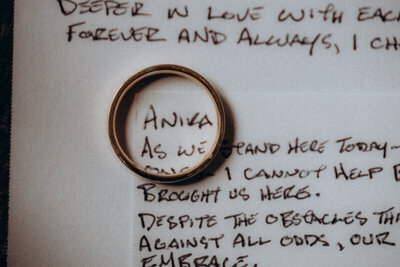 DEEPER IN LOVE WITH EAC
FOREVER AND ALWAYS, I CH
ANIKA
AS WE STAND HERE TODAY-
I CANNOT HELP B
BROUGHT US HERE.
DESPITE THE OBSTACLES THA
AGAINST ALL ODDS, OUR
EMBRACE.